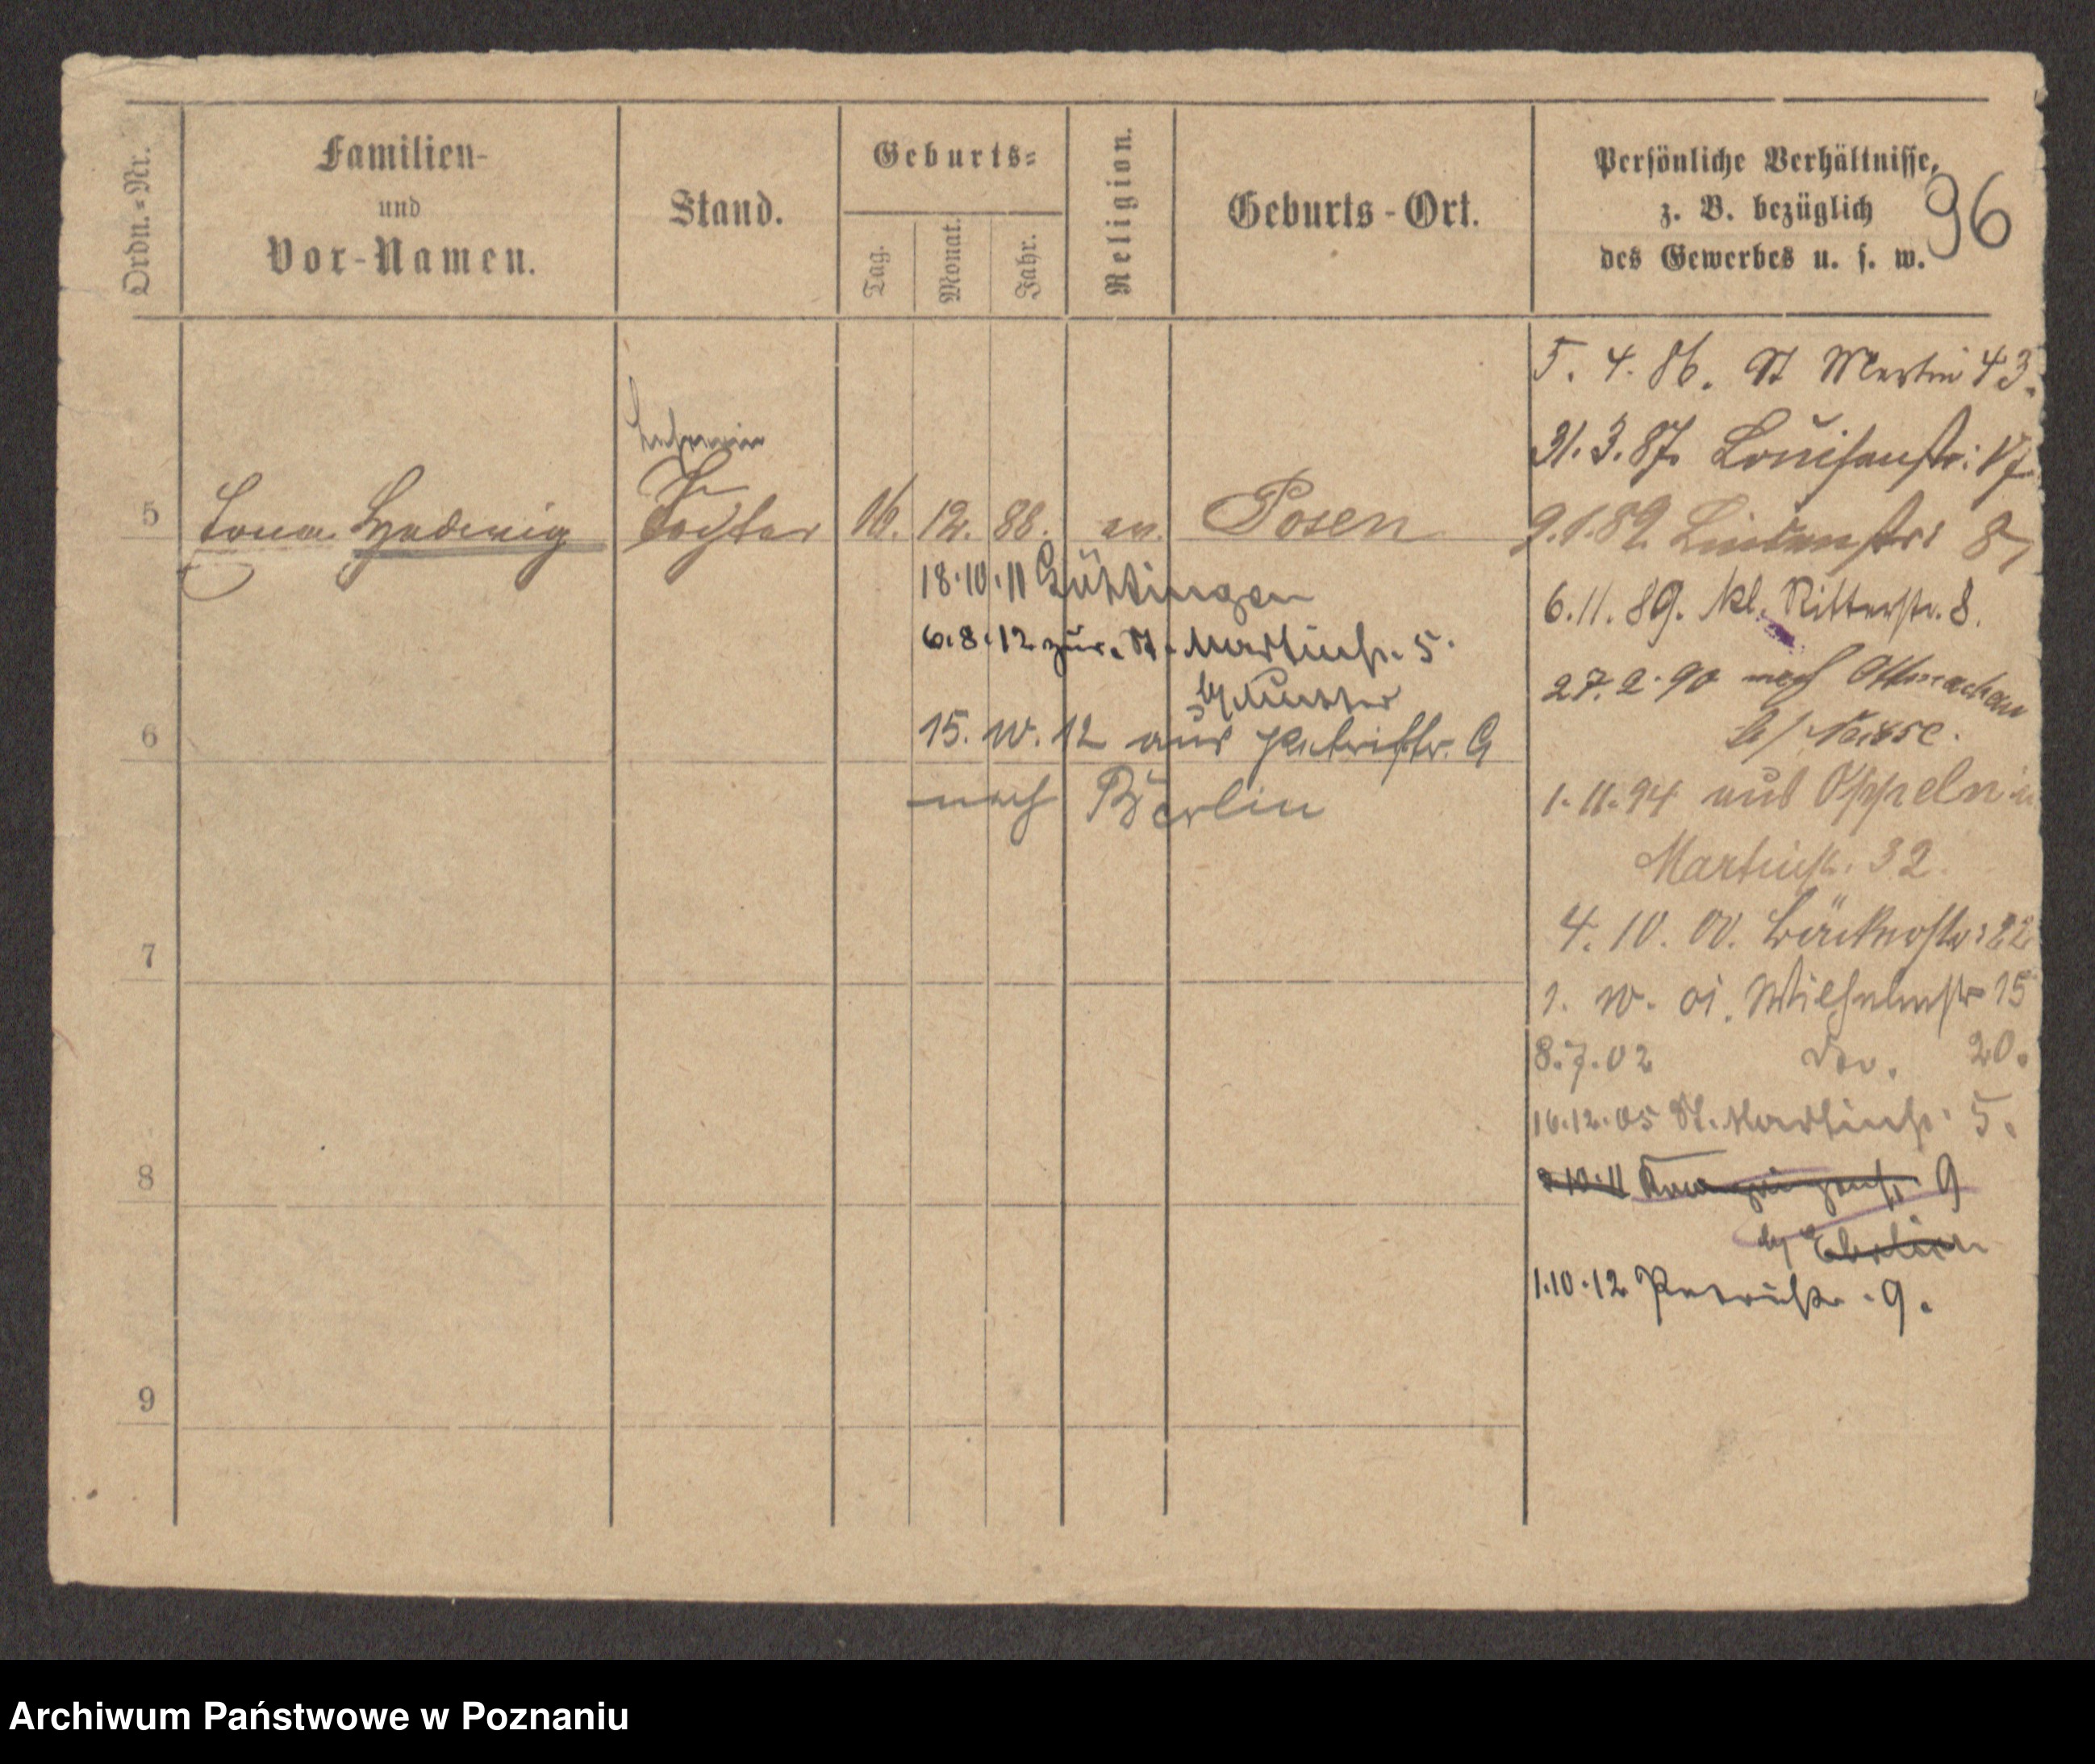 Ordn.-Nr.
Familien-
und
Vor-Namen.
Stand.
Geburts-
Tag.
Monat.
Jahr.
Religion.
Geburts-Ort.
Persönliche Verhältnisse,
z. B. bezüglich
des Gewerbes u. s. w.
96
Lehrerin
5 Hedwig Tochter 16. 12. 88. ev. Posen
18.10.11 Göttingen
6.8.12 zur. St. Martinstr. 5.
by Mutter
6
15. 10. 12 aus Petristr. 9
nach Berlin
7
8
9
5. 4. 86. St Martin 43.
31.3.87. Louisenstr: 17
9.1.89. Lindenstr: 8
6.11.89. kl. Ritterstr. 8.
27.2.90 nach Ottmachau
b/ Neisse.
1.11.94 aus Oppeln
Martinstr. 32.
4. 10. 00. Bäckerstr: 22
1. 10. 01. Wilhelmstr 15
8.7.02 do. 20.
16.12.05 St. Martinstr. 5.
9
by
1.10.12 Petristr. 9.
Archiwum Państwowe w Poznaniu